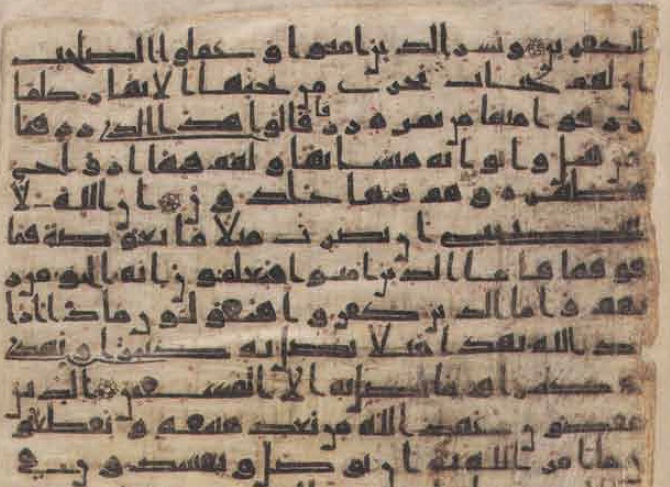 للكفرين وبشر الذين امنوا وعملوا الصلحت
ان لهم جنات تجري من تحتها الانهر كلما
رزقوا منها من ثمرة رزقا قالوا هذا الذي رزقنا
من قبل واتوا به متشابها ولهم فيها ازواج
مطهرة وهم فيها خلدون ان الله لا
يستحيي ان يضرب مثلا ما بعوضة فما
فوقها فاما الذين امنوا فيعلمون انه الحق من ر
بهم واما الذين كفروا فيقولون ماذا ارا
د الله بهذا مثلا يضل به كثيرا ويهدي
به كثيرا وما يضل به الا الفسقين الذين
ينقضون عهد الله من بعد ميثقه ويقطعون
ما امر الله به ان يوصل ويفسدون في